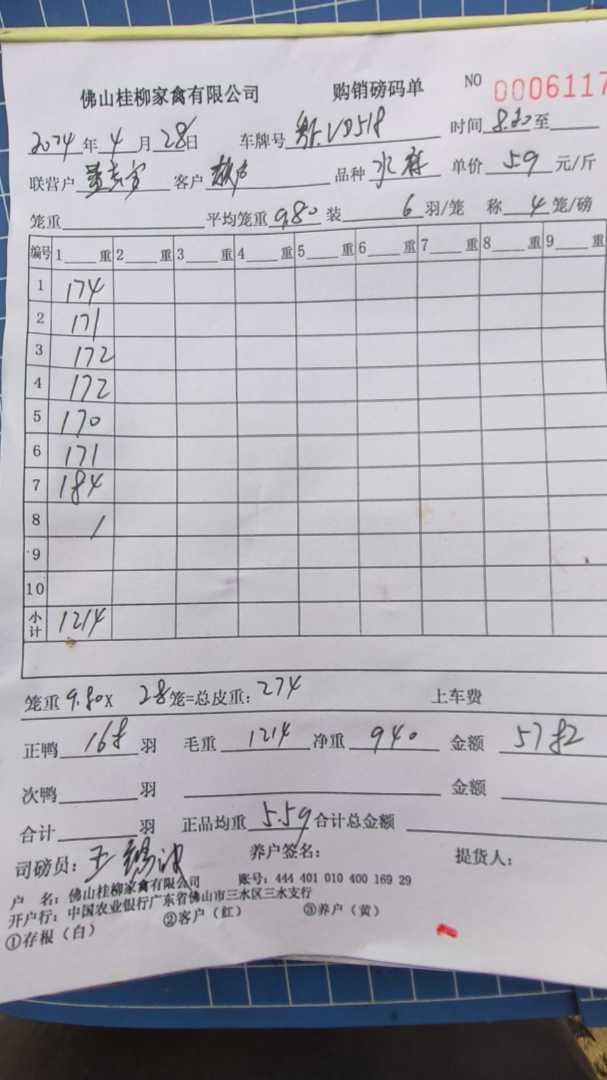 佛山桂柳家禽有限公司 购销磅码单 NO 0006117
2024年4月28日 车牌号 VD518 时间8.20至
联营户 客户 品种水 单价 5.9 元/斤
笼重 平均笼重9.80装 6 羽/笼 称 4 笼/磅
编号 1 重 2 重 3 重 4 重 5 重 6 重 7 重 8 重 9 重
1 174
2 171
3 172
4 172
5 170
6 171
7 184
8 /
9
10
小计 1214
笼重9.80X 28笼=总皮重:274 上车费
正鸭 168 羽 毛重 1214 净重 940 金额
次鸭 羽 金额
合计 羽 正品均重 5.59 合计总金额
司磅员: 王锡 养户签名: 提货人:
户 名:佛山桂柳家禽有限公司 账号:444 401 010 400 169 29
开户行:中国农业银行广东省佛山市三水区三水支行
①存根(白) ②客户(红) ③养户(黄)